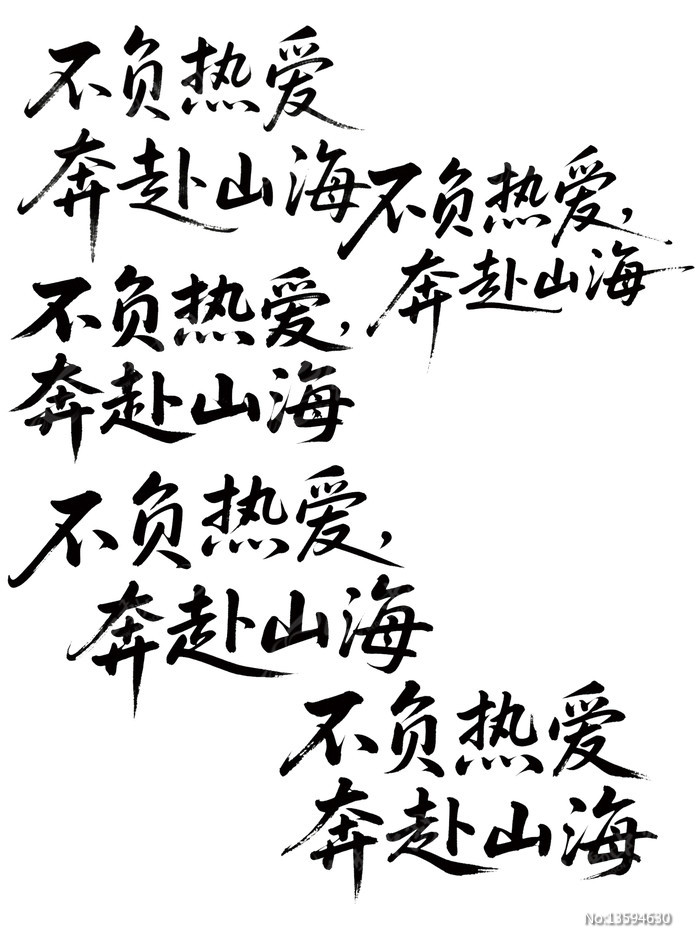 不负热爱
奔赴山海
不负热爱，
奔赴山海
不负热爱，
奔赴山海
不负热爱，
奔赴山海
不负热爱
奔赴山海
No:13594630